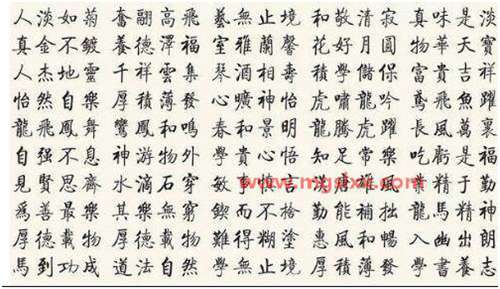 人淡如菊 奮翮高飛 藝無止境 和敬清寂 真味是淡
真金不鍍 養德澤福 室雅蘭馨 花好月圓 物華天寶
人杰地靈 千祥雲集 琴酒相壽 學儲保 富貴吉祥
怡然自樂 厚積薄發 心曠神怡 虎嘯龍吟 鳶飛魚躍
龍飛鳳舞 鸞鳳和鳴 春和景明 龍騰虎躍 長風萬裏
自強不息 神游物外 學貴心悟 知足常樂 吃虧是福
見賢思齊 水滴石穿 敏 于
為善最樂 其樂無窮 鍥而不 勤能補拙 龍馬精神
厚德載物 厚德 難得糊塗 惠風和暢 入幽出朗
馬到功成 道法自然 學無止境 厚積薄發 學書養志